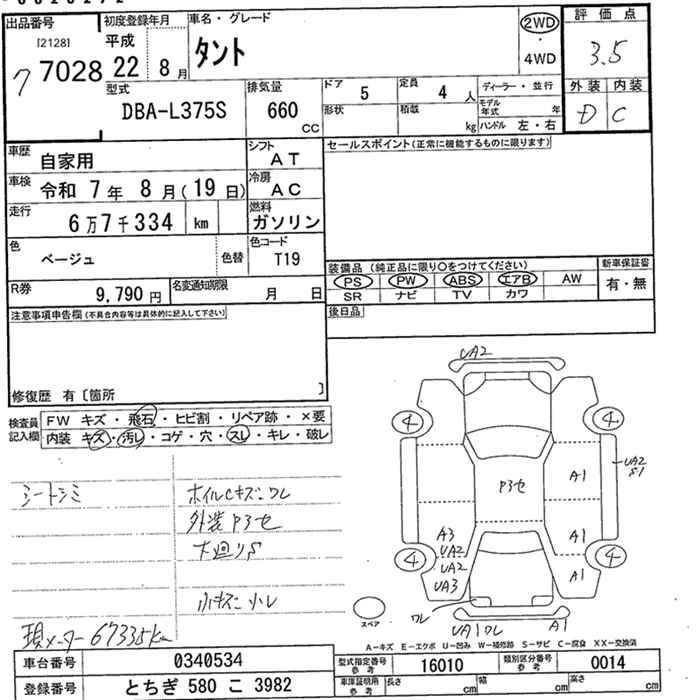 出品番号 初度登録年月 車名・グレード 2WD 評価点
[2128] 平成 タント ・ 3.5
7 7028 22 8月 4WD 外装 内装
型式 排気量 ドア 5 定員 4人 ディーラー・並行 D C
DBA-L375S 660 CC 形状 積載 kg モデル年式 年
ハンドル 左・右
車歴 自家用 シフト AT セールスポイント(正常に機能するものに限ります)
車検 令和 7年 8月(19日) 冷房 AC
走行 6万7千334 km 燃料 ガソリン
色 ベージュ 色替 色コード T19
装備品 (純正品に限り○をつけてください) 新車保証書
PS PW ABS エアB AW 有・無
SR ナビ TV カワ
R券 9,790円 名変通知期限 月 日
注意事項申告欄(不具合内容等は具体的に記入して下さい) 後日品
修復歴 有 〔箇所 〕
検査員記入欄 FW キズ・飛石・ヒビ割・リペア跡・×要
内装 キズ・汚し・コゲ・穴・スレ・キレ・破レ
シートシミ
ホイルCキズニワレ
外装P3セ
下廻りS
小キズニ凹レ
現メーター67335km
UA2
4 4
UA2
S1
P3セ A1
A3 A1
UA2
UA2
4 4
UA3 A1
ワレ
スペア UA1ワレ A1
A-キズ E-エクボ U-凹み W-補修跡 S-サビ C-腐食 XX-交換済
車台番号 0340534 型式指定番号 参考 16010 類別区分番号 参考 0014
登録番号 とちぎ 580 こ 3982 車庫証明用 参考 長さ cm 幅 cm 高さ cm